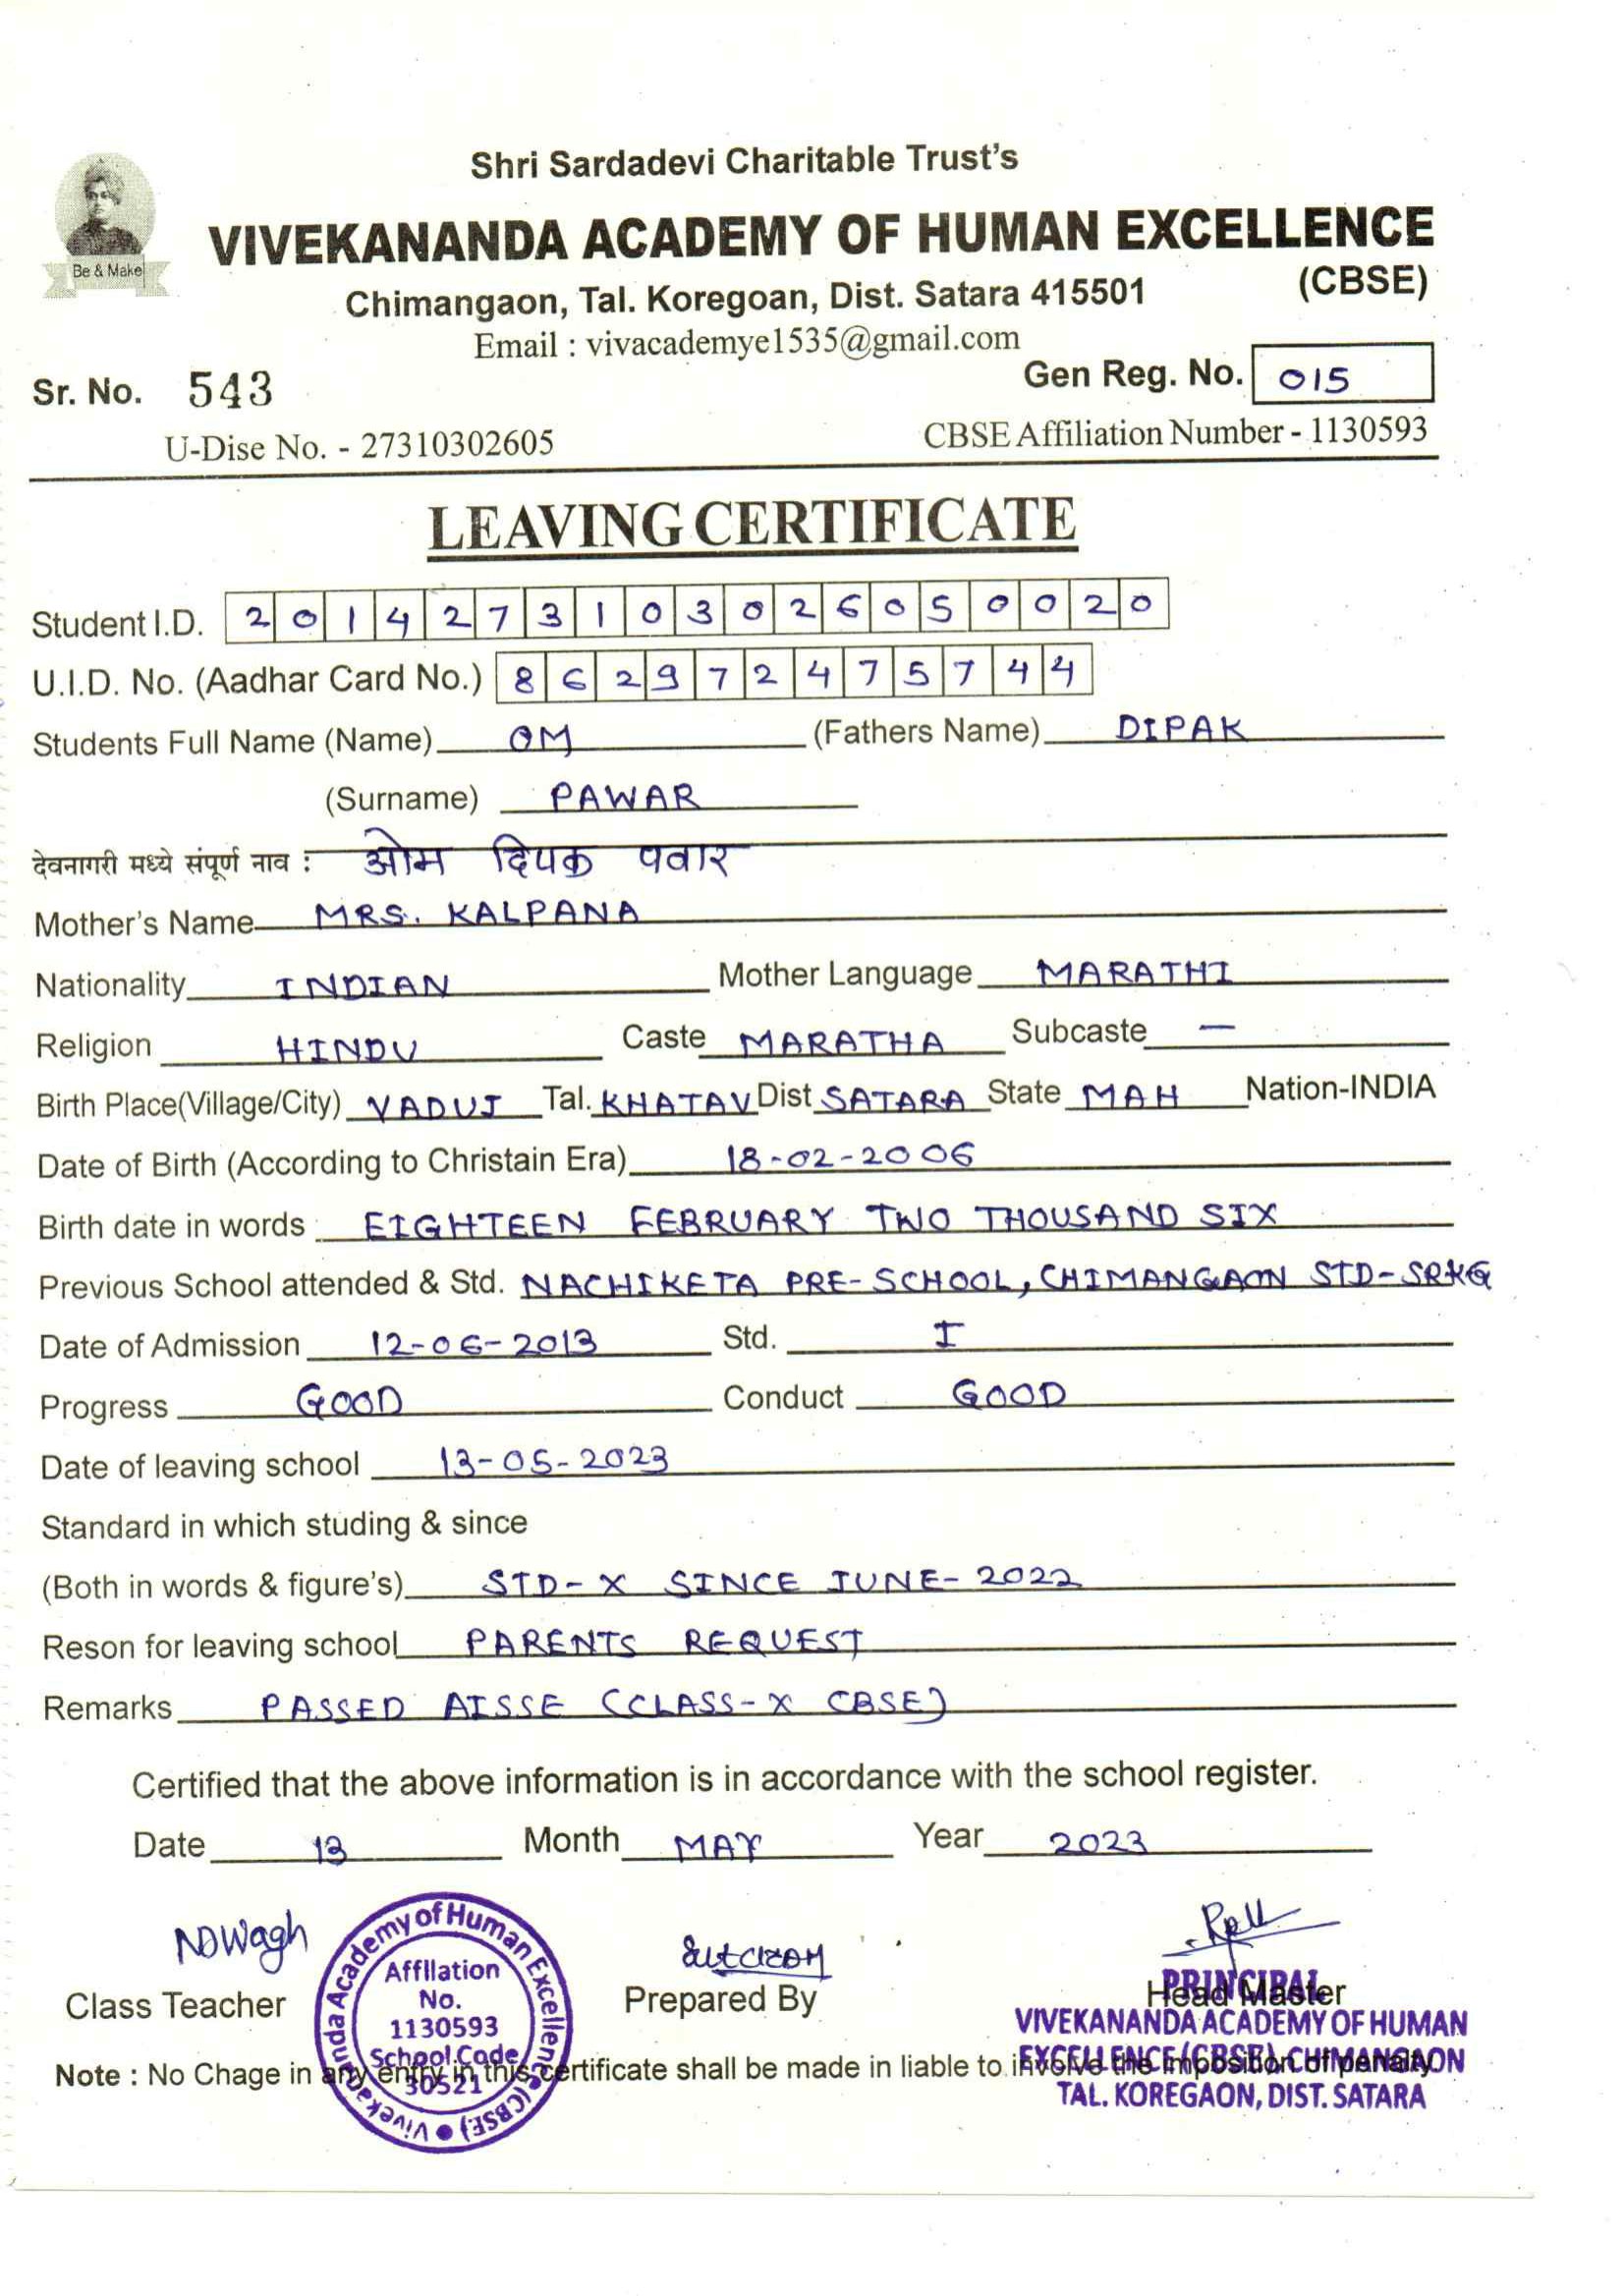 Shri Sardadevi Charitable Trust's
Be & Make
VIVEKANANDA ACADEMY OF HUMAN EXCELLENCE
(CBSE)
Chimangaon, Tal. Koregoan, Dist. Satara 415501
Email : vivacademye1535@gmail.com
Sr. No. 543 Gen Reg. No. 015
U-Dise No. - 27310302605 CBSE Affiliation Number - 1130593
LEAVING CERTIFICATE
Student I.D. 2014273103026050020
U.I.D. No. (Aadhar Card No.) 862972475744
Students Full Name (Name) OM (Fathers Name) DIPAK
(Surname) PAWAR
देवनागरी मध्ये संपूर्ण नाव : ओम दिपक पवार
Mother's Name MRS. KALPANA
Nationality INDIAN Mother Language MARATHI
Religion HINDU Caste MARATHA Subcaste —
Birth Place(Village/City) VADUJ Tal. KHATAV Dist SATARA State MAH Nation-INDIA
Date of Birth (According to Christain Era) 18-02-2006
Birth date in words EIGHTEEN FEBRUARY TWO THOUSAND SIX
Previous School attended & Std. NACHIKETA PRE-SCHOOL, CHIMANGAON STD-SRKG
Date of Admission 12-06-2013 Std. I
Progress GOOD Conduct GOOD
Date of leaving school 13-05-2023
Standard in which studing & since
(Both in words & figure's) STD-X SINCE JUNE-2022
Reson for leaving school PARENTS REQUEST
Remarks PASSED AISSE (CLASS-X CBSE)
Certified that the above information is in accordance with the school register.
Date 13 Month MAY Year 2023
NDWagh
Class Teacher
Vivekananda Academy of Human Excellence (CBSE)
Affiliation
No.
1130593
School Code
30521
Prepared By
Head Master
PRINCIPAL
VIVEKANANDA ACADEMY OF HUMAN
EXCELLENCE (CBSE) CHIMANGAON
TAL. KOREGAON, DIST. SATARA
Note : No Chage in any entry in this certificate shall be made in liable to involve the imposition of penalty